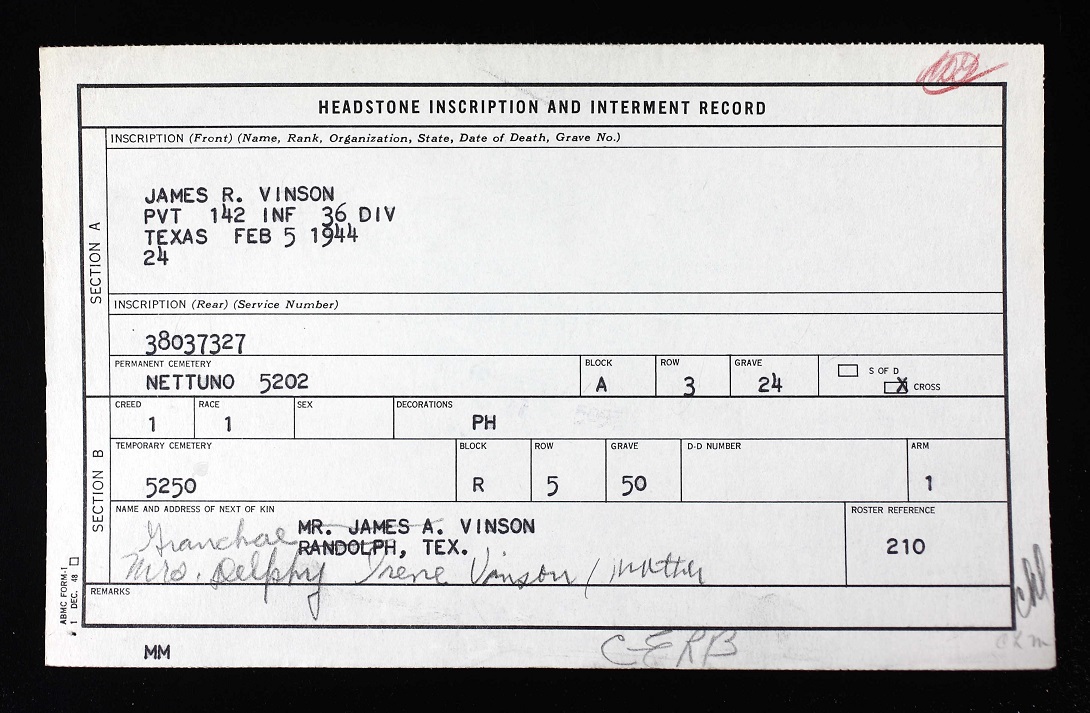 HEADSTONE INSCRIPTION AND INTERMENT RECORD
SECTION A
INSCRIPTION (Front) (Name, Rank, Organization, State, Date of Death, Grave No.)
JAMES R. VINSON
PVT 142 INF 36 DIV
TEXAS FEB 5 1944
24
INSCRIPTION (Rear) (Service Number)
38037327
PERMANENT CEMETERY BLOCK ROW GRAVE S OF D
NETTUNO 5202 A 3 24 X CROSS
SECTION B
CREED RACE SEX DECORATIONS
1 1 PH
TEMPORARY CEMETERY BLOCK ROW GRAVE D-D NUMBER ARM
5250 R 5 50 1
NAME AND ADDRESS OF NEXT OF KIN ROSTER REFERENCE
MR. JAMES A. VINSON
RANDOLPH, TEX. 210
Mrs. Delphy Irene Vinson / Mother
REMARKS
ABMC FORM-1
1 DEC. 48
MM CERB